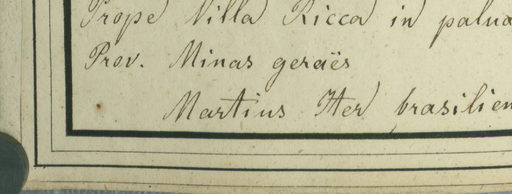 Prope Villa Ricca in palud
Prov. Minas geraës
Martius Iter brasilien